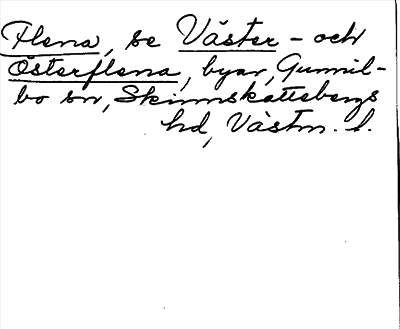 Flena, se Väster- och
Österflena, byar, Gunnil-
bo sn, Skinnskattebergs
hd, Västm. l.